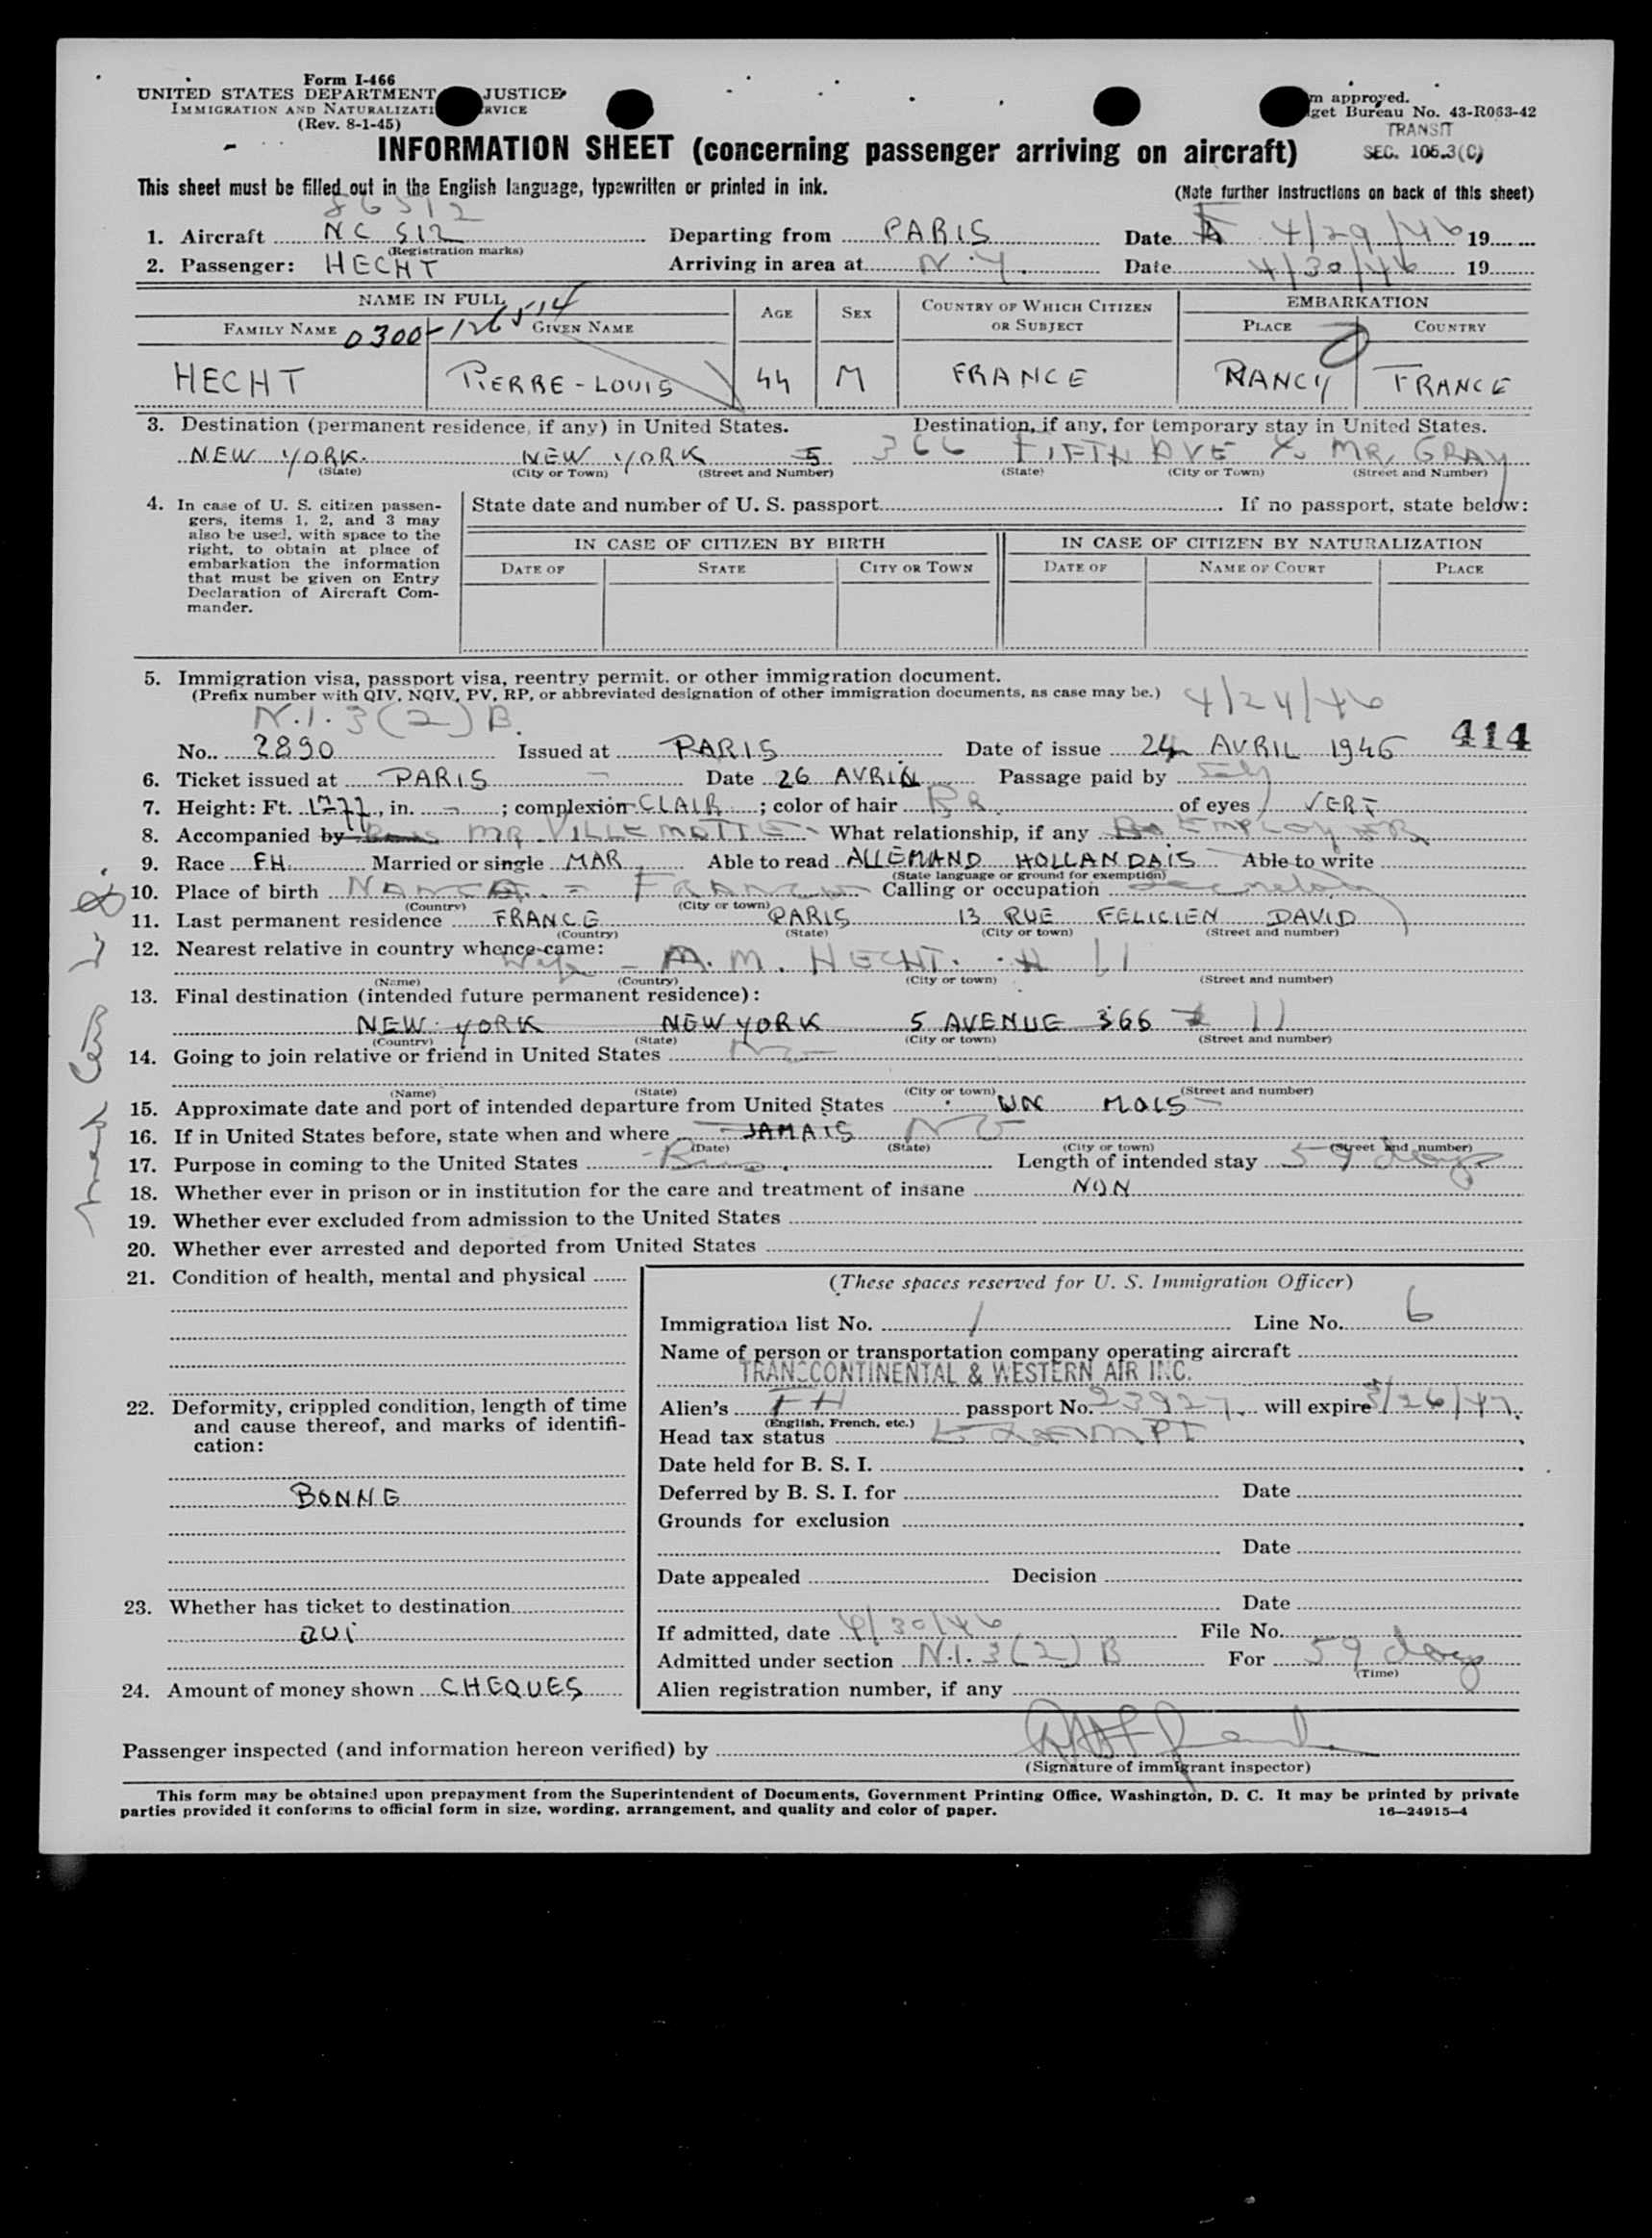 Form I-466
UNITED STATES DEPARTMENT JUSTICE
IMMIGRATION AND NATURALIZATI RVICE
(Rev. 8-1-45)
m approved.
get Bureau No. 43-R063-42
TRANSIT
SEC. 105.3(C)
INFORMATION SHEET (concerning passenger arriving on aircraft)
This sheet must be filled out in the English language, typewritten or printed in ink.
(Note further instructions on back of this sheet)
86512
1. Aircraft NC 512 Departing from PARIS Date 4/29/46 19
(Registration marks)
2. Passenger: HECHT Arriving in area at N.Y. Date 4/30/46 19
NAME IN FULL AGE SEX COUNTRY OF WHICH CITIZEN OR SUBJECT EMBARKATION
FAMILY NAME 0300-126514 GIVEN NAME PLACE COUNTRY
HECHT PIERRE-LOUIS 44 M FRANCE NANCY FRANCE
3. Destination (permanent residence, if any) in United States. Destination, if any, for temporary stay in United States.
NEW YORK. NEW YORK 5 366 FIFTH AVE % MR. GRAY
(State) (City or Town) (Street and Number) (State) (City or Town) (Street and Number)
4. In case of U. S. citizen passengers, items 1, 2, and 3 may also be used, with space to the right, to obtain at place of embarkation the information that must be given on Entry Declaration of Aircraft Commander.
State date and number of U. S. passport If no passport, state below:
IN CASE OF CITIZEN BY BIRTH IN CASE OF CITIZEN BY NATURALIZATION
DATE OF STATE CITY OR TOWN DATE OF NAME OF COURT PLACE
5. Immigration visa, passport visa, reentry permit, or other immigration document.
(Prefix number with QIV, NQIV, PV, RP, or abbreviated designation of other immigration documents, as case may be.) 4/24/46
N.I. 3(2)B.
414
No. 2890 Issued at PARIS Date of issue 24 AVRIL 1946
6. Ticket issued at PARIS Date 26 AVRIL Passage paid by
7. Height: Ft. 1.77, in. ; complexion CLAIR ; color of hair BR of eyes VERT
8. Accompanied by MR VILLEMOTTE What relationship, if any EMPLOYER
9. Race FH. Married or single MAR Able to read ALLEMAND HOLLANDAIS Able to write
(State language or ground for exemption)
10. Place of birth Calling or occupation Secretary
(Country) (City or town)
11. Last permanent residence FRANCE PARIS 13 RUE FELICIEN DAVID
(Country) (State) (City or town) (Street and number)
12. Nearest relative in country whence came:
Wife - M. M. HECHT. 11
(Name) (Country) (City or town) (Street and number)
13. Final destination (intended future permanent residence):
NEW YORK NEW YORK 5 AVENUE 366 11
(Country) (State) (City or town) (Street and number)
14. Going to join relative or friend in United States No
(Name) (State) (City or town) (Street and number)
15. Approximate date and port of intended departure from United States UN MOIS
16. If in United States before, state when and where JAMAIS NO
(Date) (State) (City or town) (Street and number)
17. Purpose in coming to the United States Bus. Length of intended stay 59 days
18. Whether ever in prison or in institution for the care and treatment of insane NON
19. Whether ever excluded from admission to the United States
20. Whether ever arrested and deported from United States
21. Condition of health, mental and physical
22. Deformity, crippled condition, length of time and cause thereof, and marks of identification:
BONNE
23. Whether has ticket to destination
OUI
24. Amount of money shown CHEQUES
(These spaces reserved for U. S. Immigration Officer)
Immigration list No. 1 Line No. 6
Name of person or transportation company operating aircraft
TRANSCONTINENTAL & WESTERN AIR INC.
Alien's FH passport No. 23927 will expire 3/26/47.
(English, French, etc.)
Head tax status EXEMPT
Date held for B. S. I.
Deferred by B. S. I. for Date
Grounds for exclusion
Date
Date appealed Decision
Date
If admitted, date 4/30/46 File No.
Admitted under section N.I. 3(2)B For 59 days
(Time)
Alien registration number, if any
Passenger inspected (and information hereon verified) by
(Signature of immigrant inspector)
This form may be obtained upon prepayment from the Superintendent of Documents, Government Printing Office, Washington, D. C. It may be printed by private
parties provided it conforms to official form in size, wording, arrangement, and quality and color of paper. 16—24915-4